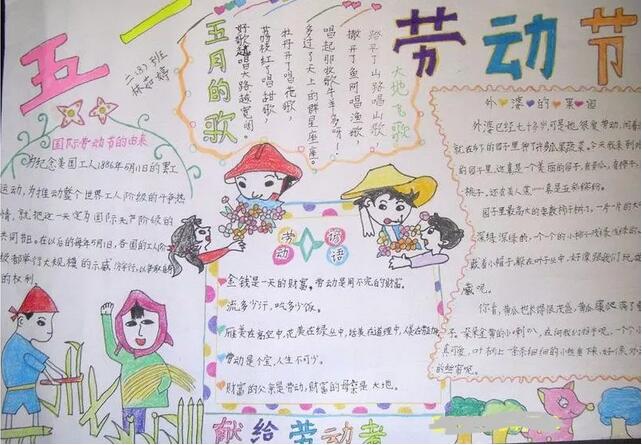 五一
劳动节
二.(3)班
五月的歌
大地飞歌
路平了山路唱山歌
撒开了鱼网唱渔歌
唱起那牧歌牛羊多呀!
多过了天上的群星座座。
牡丹开了唱花歌,
荔枝红了唱甜歌,
好歌越唱大路越宽阔。
国际劳动者的由来
为纪念美国工人1886年5月1日的罢工
运动,为推动整个世界工人阶级的斗争热
情,就把这一天定为国际无产阶级的
共同节日。在以后的每年5月1日,各国的工人阶
级都举行大规模的示威游行,以争取自己
的权利。
劳动谚语
金钱是一天的财富。劳动是用不完的财富。
流多少汗,吃多少饭。
雁美在高空中,花美在绿丛中,话美在道理中,人美在
劳动是个宝,人生不可少。
财富的父亲是劳动,财富的母亲是大地。
外婆的果园
外婆已经七十多岁,可是她很爱劳动,闲着
就在
子里,还真是一个美丽的园子,
桃子,还有美人蕉……真是五彩缤纷。
园子里最高大的要数柿子树了,一片一片的大叶
深绿深绿的,一个个的小柿子浅绿浅绿的,
戴着小帽子,躲在叶子丛中,好像跟我们玩
藏呢。
你看,黄瓜也长得很茂盛,黄瓜藤爬满了
真可爱,叶子上
献给劳动者